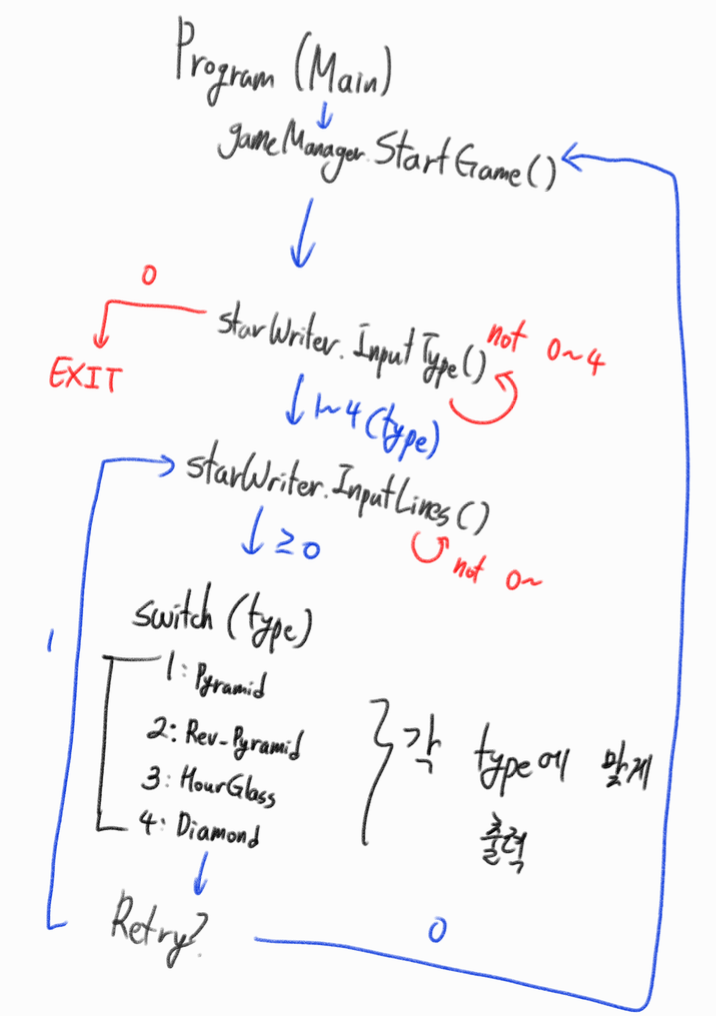 Program (Main)
gameManager.StartGame()
0
starWriter.InputType()
not 0~4
EXIT
1~4 (type)
starWriter.InputLines()
≥0
not 0~
switch (type)
1
1: Pyramid
2: Rev_Pyramid
3: HourGlass
4: Diamond
각 type에 맞게
출력
Retry?
0